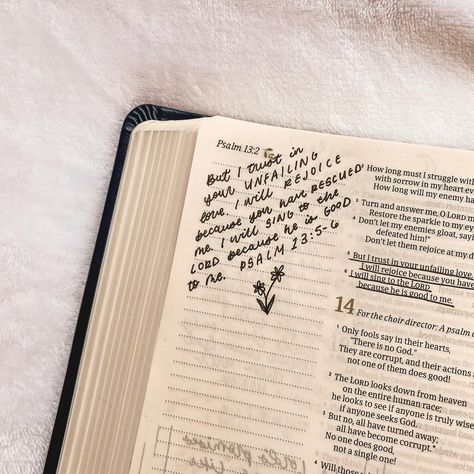 Psalm 13:2
But I trust in
your UNFAILING
love. I will REJOICE
because you have RESCUED
me. I will SING to the
LORD because he is GOOD
to me. PSALM 13:5-6
2 How long must I struggle with
with sorrow in my heart
How long will my enemy
3 Turn and answer me, O LORD
Restore the sparkle to my
4 Don't let my enemies gloat,
defeated him!"
Don't let them rejoice at my
5 But I trust in your unfailing love
I will rejoice because you have
6 I will sing to the LORD
because he is good to me.
14
For the choir director: A psalm
1 Only fools say in their hearts,
"There is no God."
They are corrupt, and their actions
not one of them does good!
2 The LORD looks down from heaven
on the entire human race;
he looks to see if anyone is truly wise
if anyone seeks God.
3 But no, all have turned away;
all have become corrupt.*
No one does good,
not a single one!